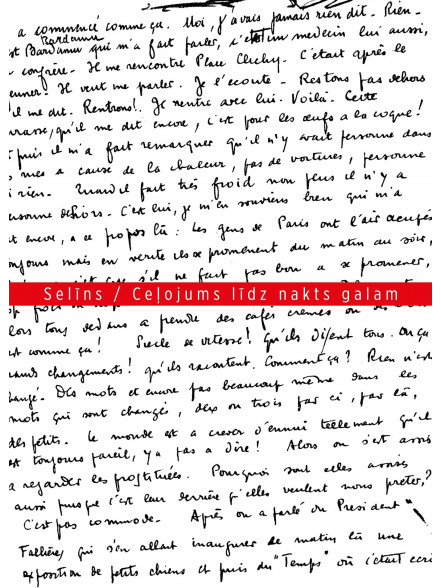 a commencé comme ça. Moi, j'avais jamais rien dit. Rien.
Bardamu
st Bardamu qui m'a fait parler, c'était un médecin lui aussi,
confrère. Il me rencontre Place Clichy. C'était après le
Il veut me parler. Je l'écoute. Restons pas dehors
il me dit. Rentrons!. Je rentre avec lui. Voilà. Cette
rrasse, qu'il me dit encore, c'est pour les œufs a la coque!
puis il m'a fait remarquer qu'il n'y avait personne dans
rues a cause de la chaleur, pas de voitures, personne
rien. Quand il fait très froid non plus il n'y a
ersonne dehors. C'est lui, je m'en souviens bien qui m'a
it encore, a ce propos là: Les gens de Paris ont l'air occupés
oujours mais en verité ils se promènent du matin au soir,
s'il ne fait pas bon a se promener,
Selīns / Ceļojums līdz nakts galam
lors tous dedans a prendre des cafes crèmes ou des
st comme ça! Siècle de vitesse! Qu'ils disent tous. Ou ça
rands changements! qu'ils racontent. Comment ça? Rien n'est
hangé. Des mots et encore pas beaucoup même dans les
mots qui sont changés, deux ou trois par ci, par là,
des petits. Le monde est a crever d'ennui tellement qu'il
est toujours pareil, y a pas a dire! Alors on s'est assis
a regarder les prostituées. Pourquoi sont elles assises
aussi puisque c'est leur derrière qu'elles veulent nous prêter?
C'est pas commode. Après on a parlé du President
Fallières qui s'en allait inaugurer ce matin là une
exposition de petits chiens et puis du "Temps" où c'était ecrit